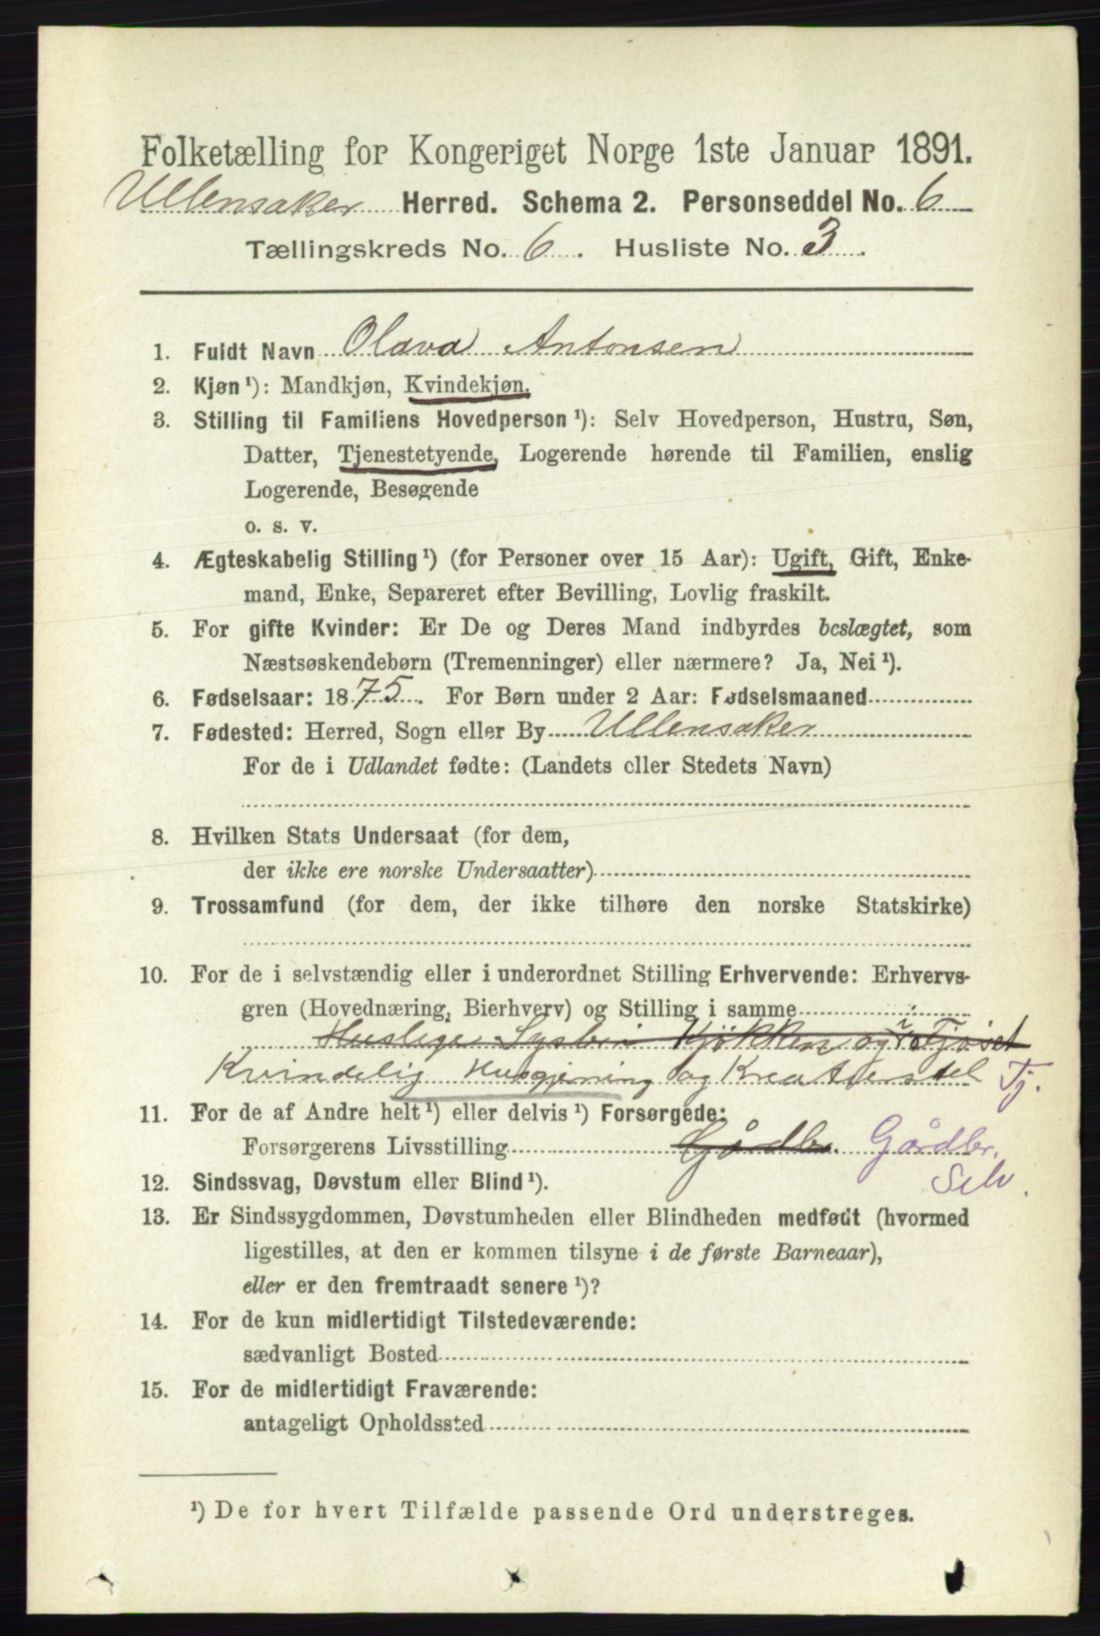 Folketælling for Kongeriget Norge 1ste Januar 1891.
Ullensaker Herred. Schema 2. Personseddel No. 6
Tællingskreds No. 6. Husliste No. 3.
1. Fuldt Navn Olava Antonsen
2. Kjøn ¹): Mandkjøn, Kvindekjøn.
3. Stilling til Familiens Hovedperson ¹): Selv Hovedperson, Hustru, Søn,
Datter, Tjenestetyende, Logerende hørende til Familien, enslig
Logerende, Besøgende
o. s. v.
4. Ægteskabelig Stilling ¹) (for Personer over 15 Aar): Ugift, Gift, Enke-
mand, Enke, Separeret efter Bevilling, Lovlig fraskilt.
5. For gifte Kvinder: Er De og Deres Mand indbyrdes beslægtet, som
Næstsøskendebørn (Tremenninger) eller nærmere? Ja, Nei ¹).
6. Fødselsaar: 1875. For Børn under 2 Aar: Fødselsmaaned
7. Fødested: Herred, Sogn eller By Ullensaker
For de i Udlandet fødte: (Landets eller Stedets Navn)
8. Hvilken Stats Undersaat (for dem,
der ikke ere norske Undersaatter)
9. Trossamfund (for dem, der ikke tilhøre den norske Statskirke)
10. For de i selvstændig eller i underordnet Stilling Erhvervende: Erhvervs-
gren (Hovednæring, Bierhverv) og Stilling i samme
Huslige Kjøkken og i Fjøset
Kvindelig Husgjerning og Kreaturstel Tj.
11. For de af Andre helt ¹) eller delvis ¹) Forsørgede:
Forsørgerens Livsstilling Gårdbr. Gårdbr.
Selv.
12. Sindssvag, Døvstum eller Blind ¹).
13. Er Sindssygdommen, Døvstumheden eller Blindheden medfødt (hvormed
ligestilles, at den er kommen tilsyne i de første Barneaar),
eller er den fremtraadt senere ¹)?
14. For de kun midlertidigt Tilstedeværende:
sædvanligt Bosted
15. For de midlertidigt Fraværende:
antageligt Opholdssted
¹) De for hvert Tilfælde passende Ord understreges.